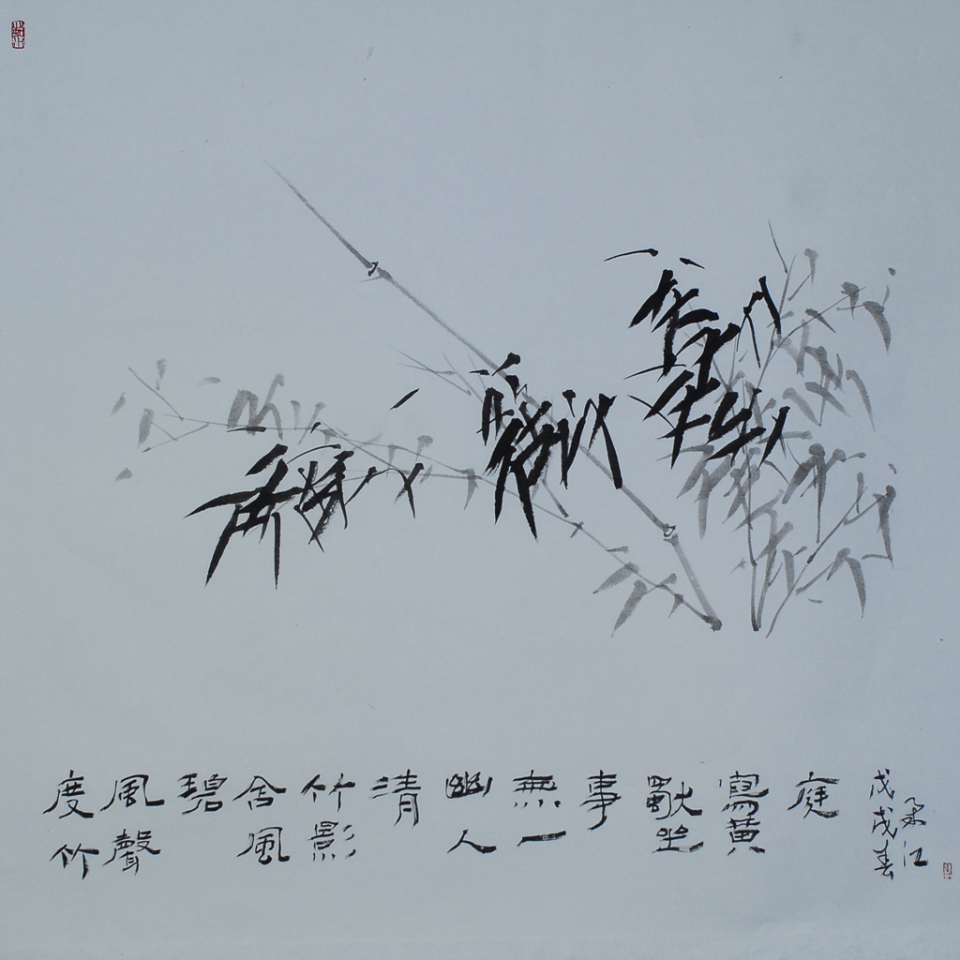 度竹
風聲
碧
含風
竹影
清
幽人
無一
事
獨坐
寫黃
庭
戊戌春
江